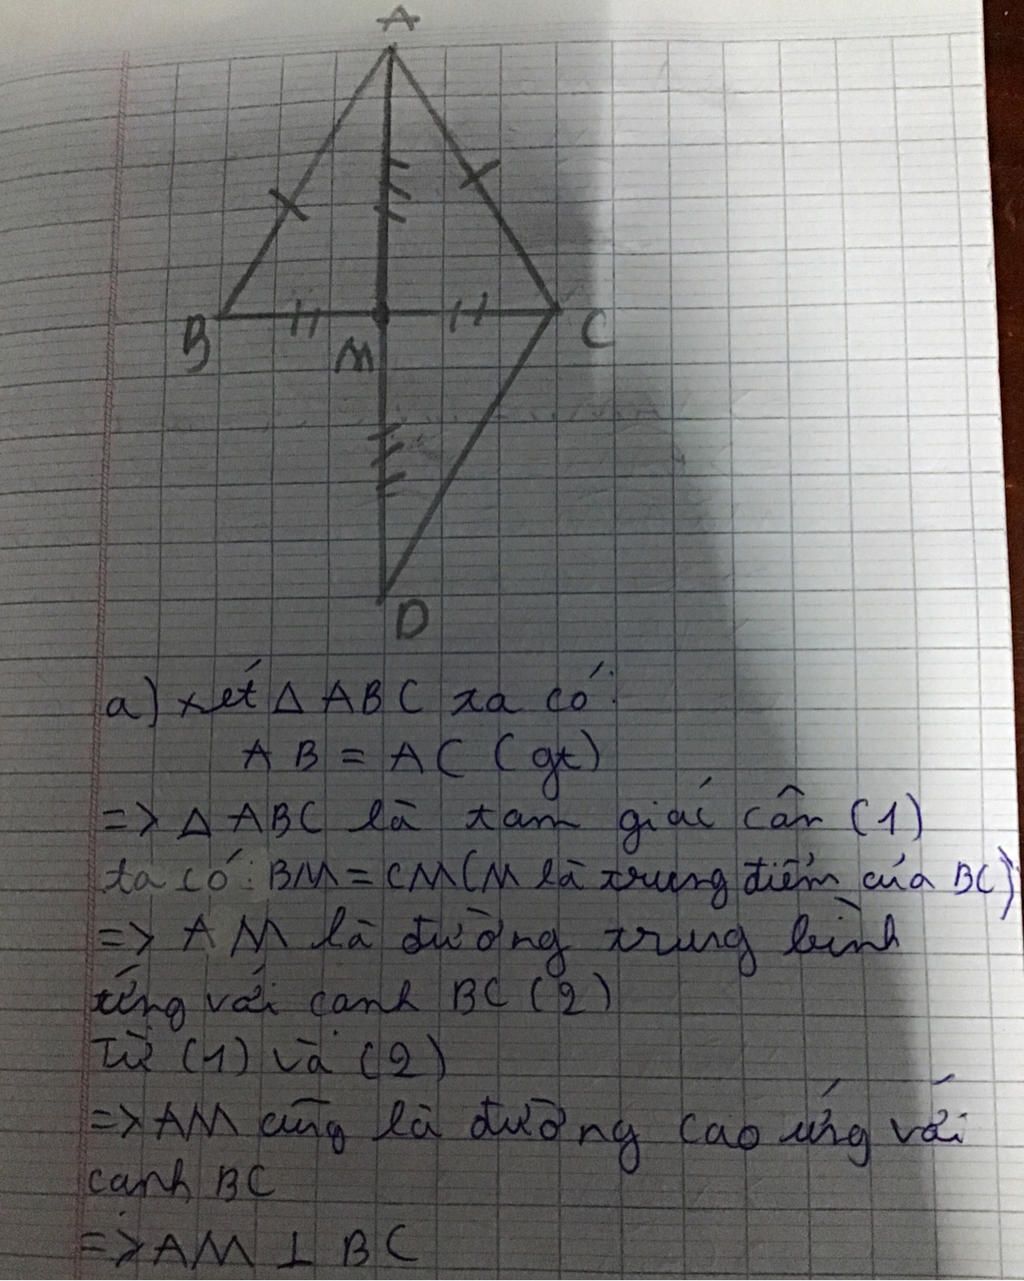 A
B
M
C
D
a) xét Δ ABC ta có:
AB = AC (gt)
=> Δ ABC là tam giác cân (1)
ta có: BM = CM (M là trung điểm của BC)
=> AM là đường trung bình
ứng với cạnh BC (2)
Từ (1) và (2)
=> AM cũng là đường cao ứng với
cạnh BC
=> AM ⊥ BC